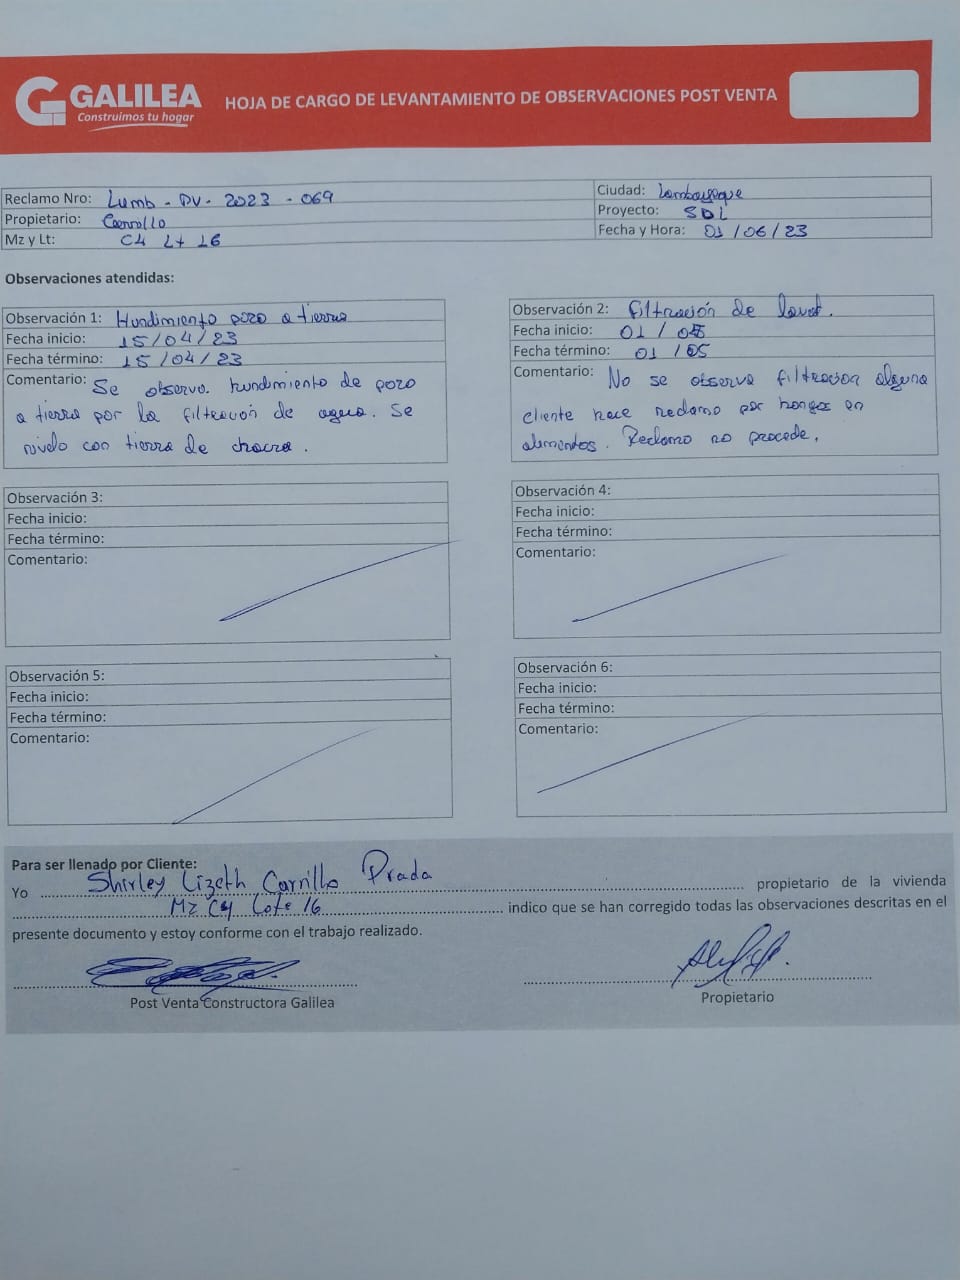 GALILEA
Construimos tu hogar
HOJA DE CARGO DE LEVANTAMIENTO DE OBSERVACIONES POST VENTA
Reclamo Nro: Lumb - PV - 2023 - 069
Ciudad: Lambayeque
Propietario: Carrillo
Proyecto: SDL
Mz y Lt: C4 Lt 16
Fecha y Hora: 01/06/23
Observaciones atendidas:
Observación 1: Hundimiento pozo a tierra
Fecha inicio: 15/04/23
Fecha término: 15/04/23
Comentario: Se observa hundimiento de pozo
a tierra por la filtración de agua. Se
nivelo con tierra de chacra.
Observación 2: Filtración de lavat.
Fecha inicio: 01/05
Fecha término: 01/05
Comentario: No se observa filtracion alguna
cliente hace reclamo por hongos en
alimentos. Reclamo no procede.
Observación 3:
Fecha inicio:
Fecha término:
Comentario:
Observación 4:
Fecha inicio:
Fecha término:
Comentario:
Observación 5:
Fecha inicio:
Fecha término:
Comentario:
Observación 6:
Fecha inicio:
Fecha término:
Comentario:
Para ser llenado por Cliente:
Yo Shirley Lizeth Carrillo Prada propietario de la vivienda
Mz C4 Lote 16 indico que se han corregido todas las observaciones descritas en el
presente documento y estoy conforme con el trabajo realizado.
Post Venta Constructora Galilea
Propietario